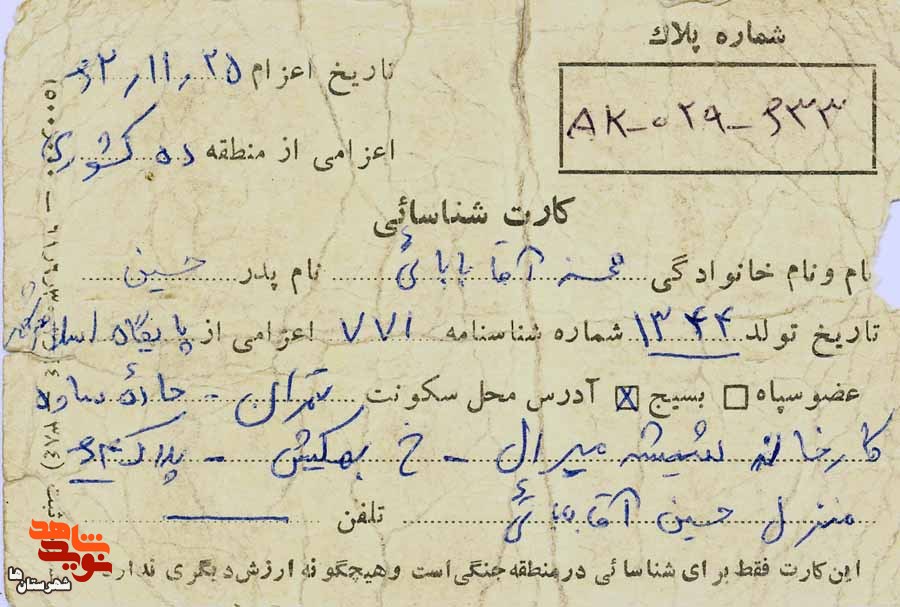 شماره پلاك
AK-029-633
تاریخ اعزام ۶۲/۱۱/۲۵
اعزامی از منطقه ده کشوری
کارت شناسائی
نام و نام خانوادگی محسن آقابابائی نام پدر حسین
تاریخ تولد ۱۳۴۴ شماره شناسنامه ۷۷۱ اعزامی از پایگاه
عضو سپاه □ بسیج ☒ آدرس محل سکونت تهران - جادهٔ ساوه
کارخانه شیشه میرال - خ بهکیش - پلاک ۶۴
منزل حسین آقابابائی تلفن —
این کارت فقط برای شناسائی در منطقه جنگی است و هیچگونه ارزش دیگری ندارد
شاهد
نوید
شهرستان‌ها